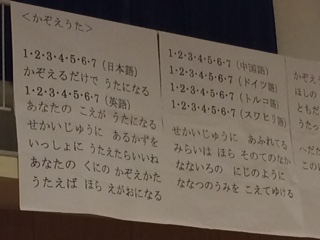 <かぞえうた>
1・2・3・4・5・6・7 (日本語)
かぞえるだけで うたになる
1・2・3・4・5・6・7 (英語)
あなたの こえが うたになる
せかいじゅうに あるかずを
いっしょに うたえたらいいね
あなたの くにの かぞえかた
うたえば ほら えがおになる
1・2・3・4・5・6・7 (中国語)
1・2・3・4・5・6・7 (ドイツ語)
1・2・3・4・5・6・7 (トルコ語)
1・2・3・4・5・6・7 (スワヒリ語)
せかいじゅうに あふれてる
みらいは ほら そのてのなか
なないろの にじのように
ななつのうみを こえてゆける
かぞえ
ほしの
ともだ
うたっ
へだた
この